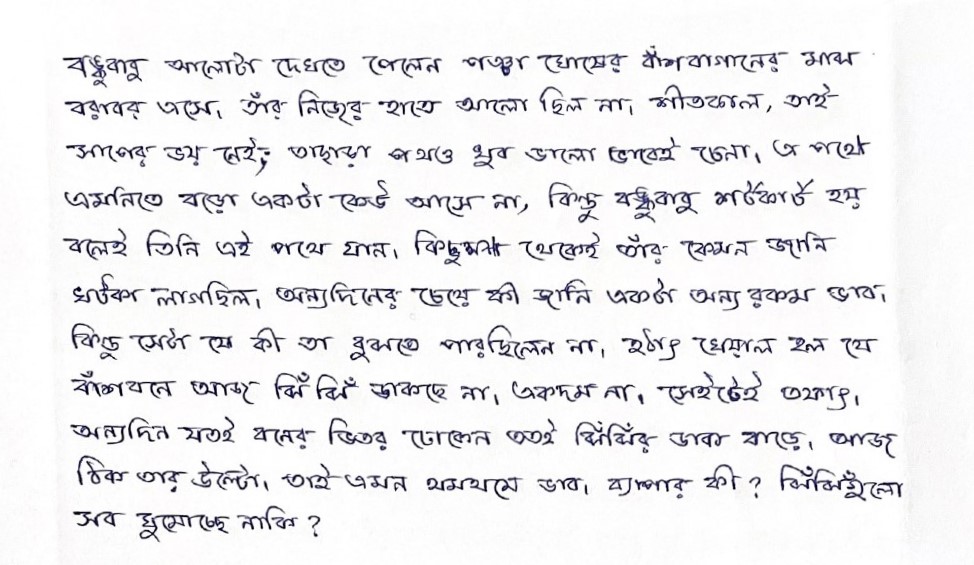 বঙ্কুবাবু আলোটা দেখতে পেলেন পঞ্চা ঘোষের বাঁশবাগানের মাঝ
বরাবর এসে। তাঁর নিজের হাতে আলো ছিল না। শীতকাল, তাই
সাপের ভয় নেই; তাছাড়া পথও খুব ভালো ভাবেই চেনা। এ পথে
এমনিতে বড়ো একটা কেউ আসে না, কিন্তু বঙ্কুবাবু শর্টকার্ট হয়
বলেই তিনি এই পথে যান। কিছুক্ষণ থেকেই তাঁর কেমন জানি
খটকা লাগছিল। অন্যদিনের চেয়ে কী জানি একটা অন্য রকম ভাব।
কিন্তু সেটা যে কী তা বুঝতে পারছিলেন না। হঠাৎ খেয়াল হল যে
বাঁশবনে আজ ঝিঁ ঝিঁ ডাকছে না। একদম না। সেইটেই তফাৎ।
অন্যদিন যতই বনের ভিতর ঢোকেন ততই ঝিঁঝিঁর ডাক বাড়ে। আজ
ঠিক তার উল্টো। তাই এমন থমথমে ভাব। ব্যাপার কী? ঝিঁঝিঁগুলো
সব ঘুমোচ্ছে নাকি?